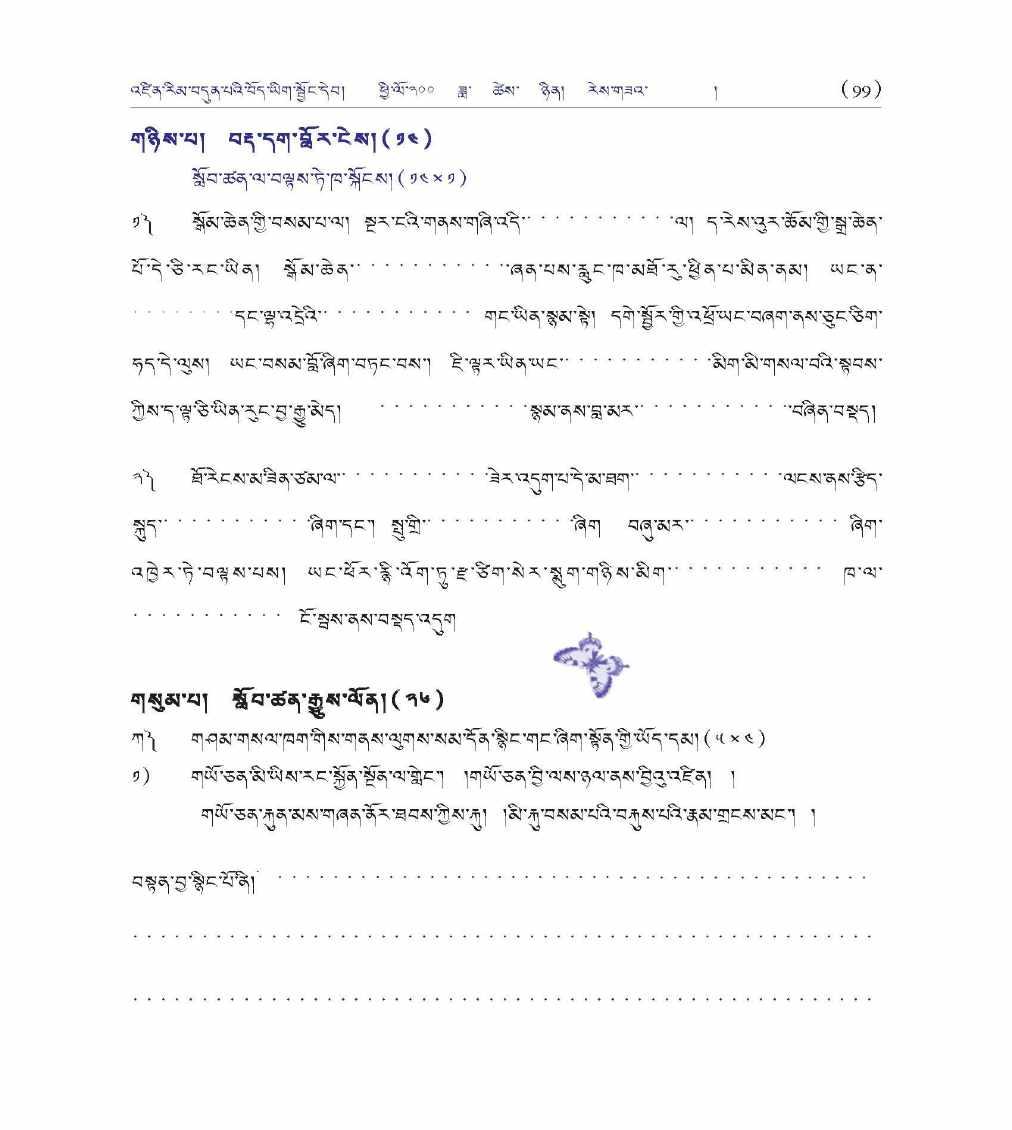 འཛིན་རིམ་བདུན་པའི་བོད་ཡིག་སྦྱོང་དེབ། ཕྱི་ལོ་༢༠༠ ཟླ་ ཚེས་ ཉིན། རེས་གཟའ་ ། (99)
གཉིས་པ། བརྡ་དག་བློར་ངེས།(༡༤)
སློབ་ཚན་ལ་བལྟས་ཏེ་ཁ་སྐོངས།(༡༤×༡)
༡༽ སྒོམ་ཆེན་གྱི་བསམ་པ་ལ། སྔར་ངའི་གནས་གཞི་འདི་ ་ ་ ་ ་ ་ ་ ་ ་ ་ ་ལ། ད་རེས་འུར་ཆོམ་གྱི་སྒྲ་ཆེན་
པོ་དེ་ཅི་རང་ཡིན། སྒོམ་ཆེན་ ་ ་ ་ ་ ་ ་ ་ ་ ་ ་ཞན་པས་རླུང་ཁ་མཐོ་རུ་ཕྱིན་པ་མིན་ནམ། ཡང་ན་
་ ་ ་ ་ ་ ་ ་ ་དང་ལྷ་འདྲེའི་ ་ ་ ་ ་ ་ ་ ་ ་ ་ ་ གང་ཡིན་སྙམ་སྟེ། དགེ་སྦྱོར་གྱི་འཕྲོ་ཡང་བཞག་ནས་ཅུང་ཅིག་
ཧད་དེ་ལུས། ཡང་བསམ་བློ་ཞིག་བཏང་བས། ཇི་ལྟར་ཡིན་ཡང་ ་ ་ ་ ་ ་ ་ ་ ་ ་ ་མིག་མི་གསལ་བའི་སྟབས་
ཀྱིས་ད་ལྟ་ཅི་ཡིན་རུང་བྱ་རྒྱུ་མེད། ་ ་ ་ ་ ་ ་ ་ ་ ་ ་ ་སྙམ་ནས་བླ་མར་ ་ ་ ་ ་ ་ ་ ་ ་ ་ ་བཞིན་བསྡད།
༢༽ ཐོ་རེངས་མ་ཟིན་ཙམ་ལ་ ་ ་ ་ ་ ་ ་ ་ ་ ་ ་ཟེར་འདུག་པ་དེ་མ་ཐག་ ་ ་ ་ ་ ་ ་ ་ ་ ་ ་ལངས་ནས་རྩིད་
སྐུད་ ་ ་ ་ ་ ་ ་ ་ ་ ་ ་ཞིག་དང་། སྤུ་གྲི་ ་ ་ ་ ་ ་ ་ ་ ་ ་ ་ཞིག བཞུ་མར་ ་ ་ ་ ་ ་ ་ ་ ་ ་ ་ ཞིག་
འཁྱེར་ཏེ་བལྟས་པས། ཡང་ཕོར་རྙི་འོག་ཏུ་རྫ་ཙིག་སེར་སྨུག་གཉིས་མིག་ ་ ་ ་ ་ ་ ་ ་ ་ ་ ་ ཁ་ལ་
་ ་ ་ ་ ་ ་ ་ ་ ་ ་ ་ ངོ་སྦས་ནས་བསྡད་འདུག
གསུམ་པ། སློབ་ཚན་རྒྱུས་ལོན།(༢༦)
ཀ༽ གཤམ་གསལ་ཁག་གིས་གནས་ལུགས་སམ་དོན་སྙིང་གང་ཞིག་སྟོན་གྱི་ཡོད་དམ།(༥×༤)
༡) གཡོ་ཅན་མི་ཡིས་རང་སྐྱོན་སྔོན་ལ་གླེང་། །གཡོ་ཅན་བྱི་ལས་ཉལ་ནས་བྱིའུ་འཛིན། །
གཡོ་ཅན་རྐུན་མས་གཞན་ནོར་ཐབས་ཀྱིས་རྐུ། །མི་རྐུ་བསམ་པའི་བརྐུས་པའི་རྣམ་གྲངས་མང་། །
བསྟན་བྱ་སྙིང་པོ་ནི། ་ ་ ་ ་ ་ ་ ་ ་ ་ ་ ་ ་ ་ ་ ་ ་ ་ ་ ་ ་ ་ ་ ་ ་ ་ ་ ་ ་ ་ ་ ་ ་ ་ ་